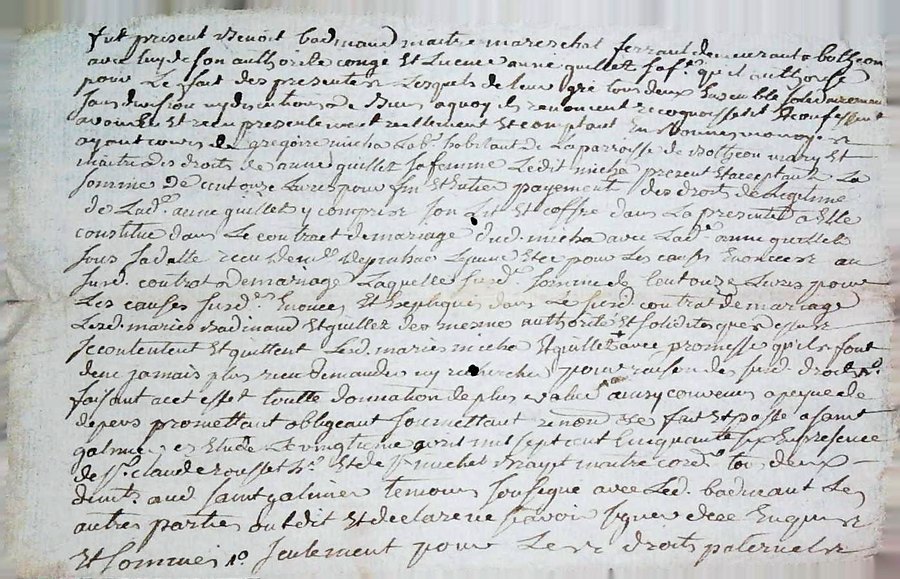 fut present Benoit badinand maitre mareschal ferrant demeurant a botheon
avec luy de son authorité congé et licence anne guillet sa fe. qu'il authorise
pour le fait des presentes lesquels de leur gré tous deux ensemble solidairement
sans division ny discution de biens a quoy ils renoncent recognoissent et confessent
avoir eu et receu presentement reellement et comptant en bonnes monoyes
ayant cours de gregoire micha lab. habitant de la parroisse de botheon mary et
maitre des droits de anne guillet sa femme ledit micha present et acceptant la
somme de cent onze livres pour fin et entier payement des droits de legitime
de lad. anne guillet y compris son lit et coffre dans la presente a elle
constitue dans le contract de mariage dud. micha avec lad. anne guillet
sous sa datte receu et ce pour les causes enoncees au
susd. contrat de mariage laquelle susd. somme de cent onze livres pour
les causes susd. enoncees et expliquées dans le susd. contrat de mariage
lesd. mariés badinand et guillet de mesme authorité et solidité que dessus
se contentent et quittent lesd. mariés micha et guillet avec promesse qu'ils font
de ne jamais plus rien demander ny rechercher pour raison des susd. droits
faisant a cet effet toutte donnation de plus value ainsy convenu a peyne de
depens promettant obligeant soumettant renonc. fait et passé a saint
galmier es etude le vingtieme avril mil sept cent cinquante six en presence
de sr. claude rousset et de sr. michel maitre cord. tous deux
dud. saint galmier temoins sousigné avec led. badinant les
autres parties ont dit et declaré ne scavoir signer de ce enquis
et sommés seulement pour les droits paternels